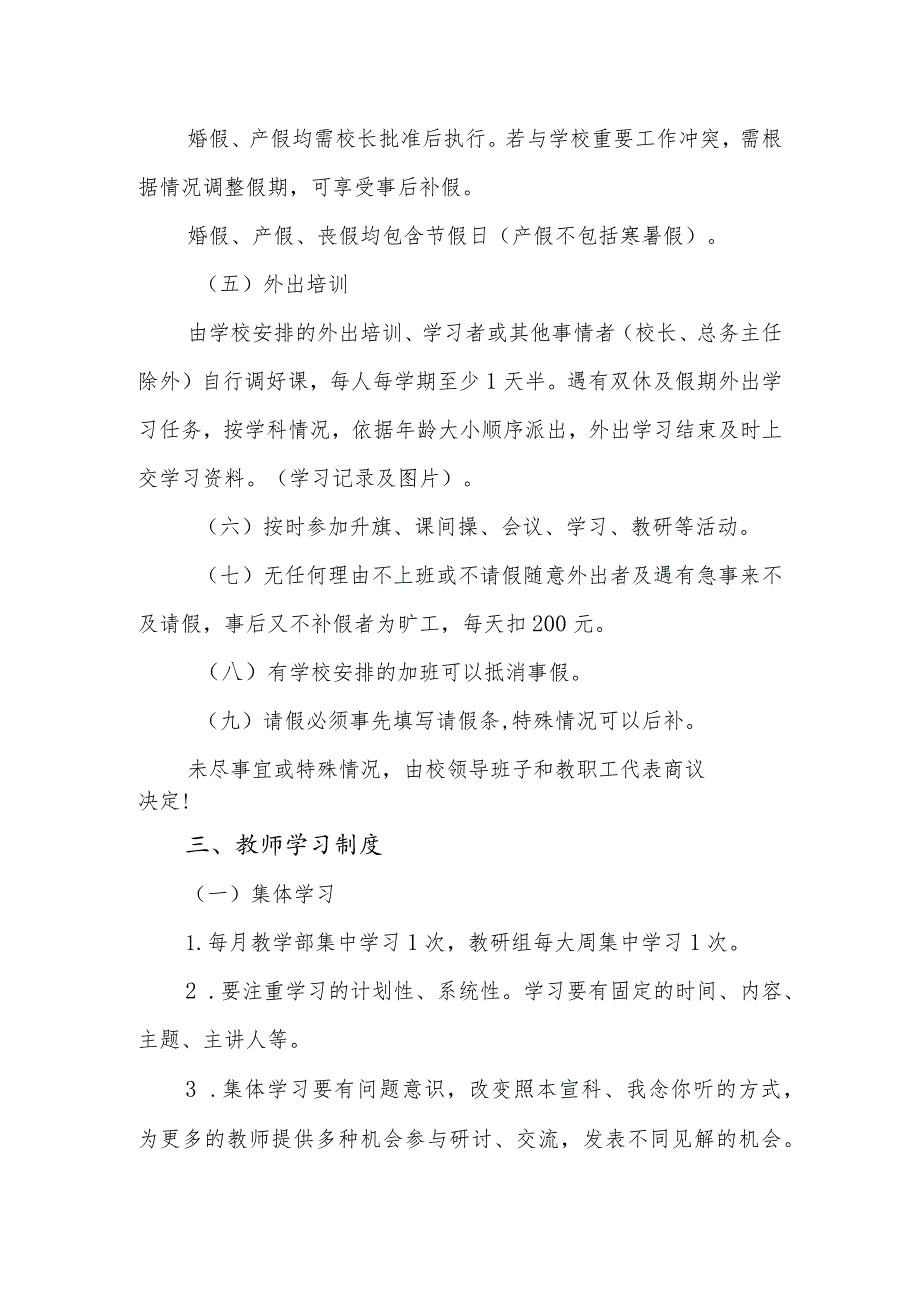 婚假、产假均需校长批准后执行。若与学校重要工作冲突，需根
据情况调整假期，可享受事后补假。
婚假、产假、丧假均包含节假日（产假不包括寒暑假）。
（五）外出培训
由学校安排的外出培训、学习者或其他事情者（校长、总务主任
除外）自行调好课，每人每学期至少 1 天半。遇有双休及假期外出学
习任务，按学科情况，依据年龄大小顺序派出，外出学习结束及时上
交学习资料。（学习记录及图片）。
（六）按时参加升旗、课间操、会议、学习、教研等活动。
（七）无任何理由不上班或不请假随意外出者及遇有急事来不
及请假，事后又不补假者为旷工，每天扣 200 元。
（八）有学校安排的加班可以抵消事假。
（九）请假必须事先填写请假条,特殊情况可以后补。
未尽事宜或特殊情况，由校领导班子和教职工代表商议
决定!
三、教师学习制度
（一）集体学习
1.每月教学部集中学习 1 次，教研组每大周集中学习 1 次。
2 .要注重学习的计划性、系统性。学习要有固定的时间、内容、
主题、主讲人等。
3 .集体学习要有问题意识，改变照本宣科、我念你听的方式，
为更多的教师提供多种机会参与研讨、交流，发表不同见解的机会。